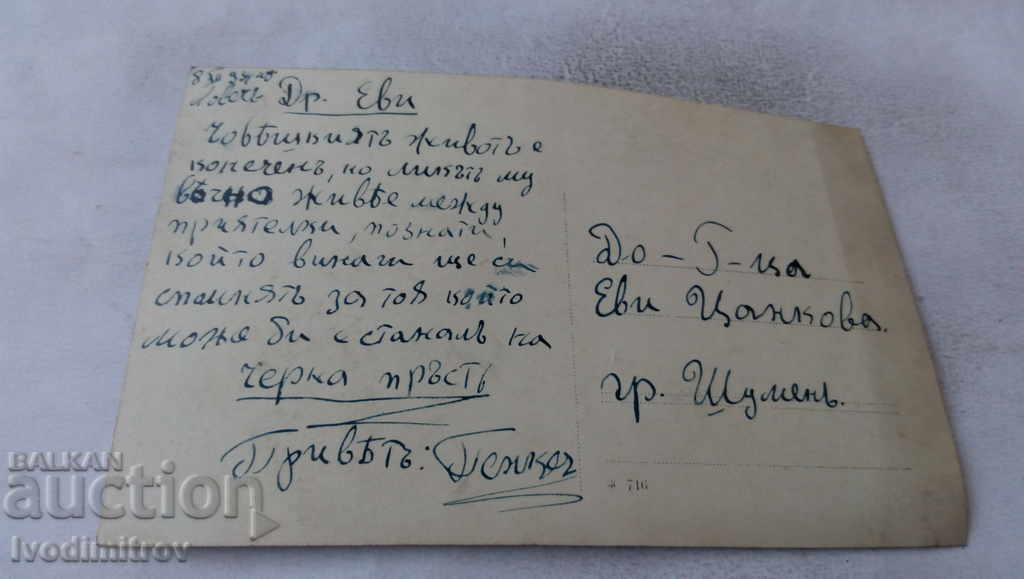 Ловечъ Др. Еви
Човѣшкиятъ животъ е
конеченъ, но ликътъ му
вѣчно живѣе между
приятелки, познати,
който винаги ще си
спомнятъ за тоя който
може би е станалъ на
черка пръсть
Привѣтъ:
До - Г-ца
Еви Цанкова.
гр. Шуменъ.
* 716
BALKAN
auction
Ivodimitrov